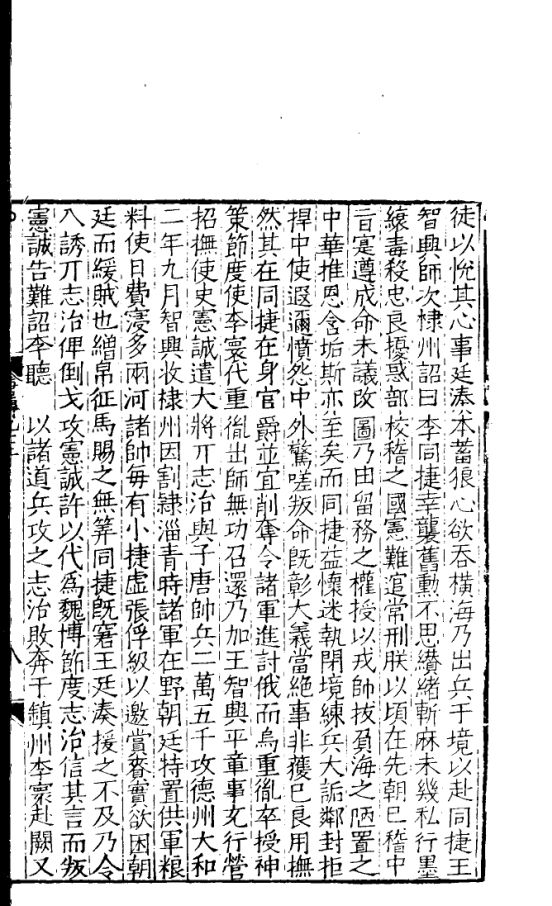 徒以悅其心事廷湊本蓄狼心欲吞橫海乃出兵于境以赴同捷王
智興師次棣州詔曰李同捷幸襲舊勳不思纘緒斬麻未幾私行墨
縗毒殺忠良擾惑部校稽之國憲難逭常刑朕以頃在先朝已稽中
旨寔遵成命未議改圖乃由留務之權授以戎帥拔負海之陋置之
中華推恩含垢斯亦至矣而同捷益懷迷執閉境練兵大詬鄰封拒
捍中使遐邇憤怨中外驚嗟叛命旣彰大義當絕事非獲已良用撫
然其在同捷在身官爵並宜削奪令諸軍進討俄而烏重胤卒授神
策節度使李寰代重胤出師無功召還乃加王智興平章事充行營
招撫使史憲誠遣大將丌志沼與子唐帥兵二萬五千攻德州大和
二年九月智興收棣州因割隷淄青時諸軍在野朝廷特置供軍粮
料使日費寖多兩河諸帥每有小捷虛張俘級以邀賞賚實欲困朝
廷而緩賊也繒帛征馬賜之無筭同捷旣窘王廷湊援之不及乃令
人誘丌志治俾倒戈攻憲誠許以代爲魏博節度志治信其言而叛
憲誠告難詔李聽 以諸道兵攻之志治敗奔于鎮州李寰赴闕又